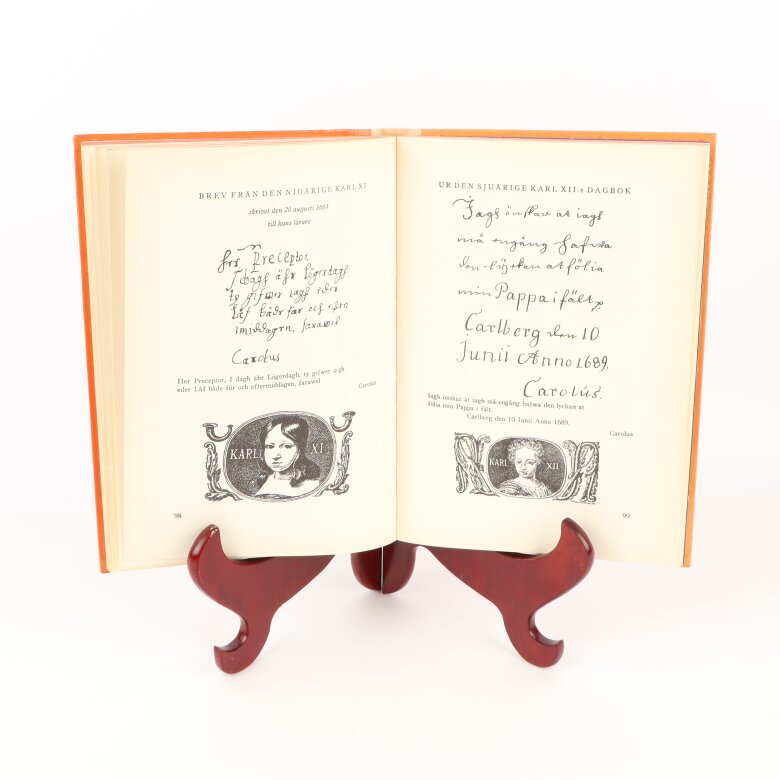 BREV FRÅN DEN NIOÅRIGE KARL XI
skrivet den 20 augusti 1664
till hans lärare
her Preceptor,
I dagh ähr lögerdagh
ty gifwer iagh eder
låf både för och efter
middagen, farawel
Carolus
Her Preceptor, I dagh ähr Lögerdagh, ty gifwer iagh
eder Låf både för och eftermiddagen, farawel
Carolus
KARL XI
98
UR DEN SJUÅRIGE KARL XII:s DAGBOK
Iagh önskar at iagh
må engång hafwa
den lyckan at fölia
min Pappa i fält
Carlberg den 10
Junii Anno 1689.
Carolus.
Iagh önskar at iagh må engång hafwa den lyckan at
fölia min Pappa i fält.
Carlberg den 10 Junii Anno 1689.
Carolus
KARL XII
99